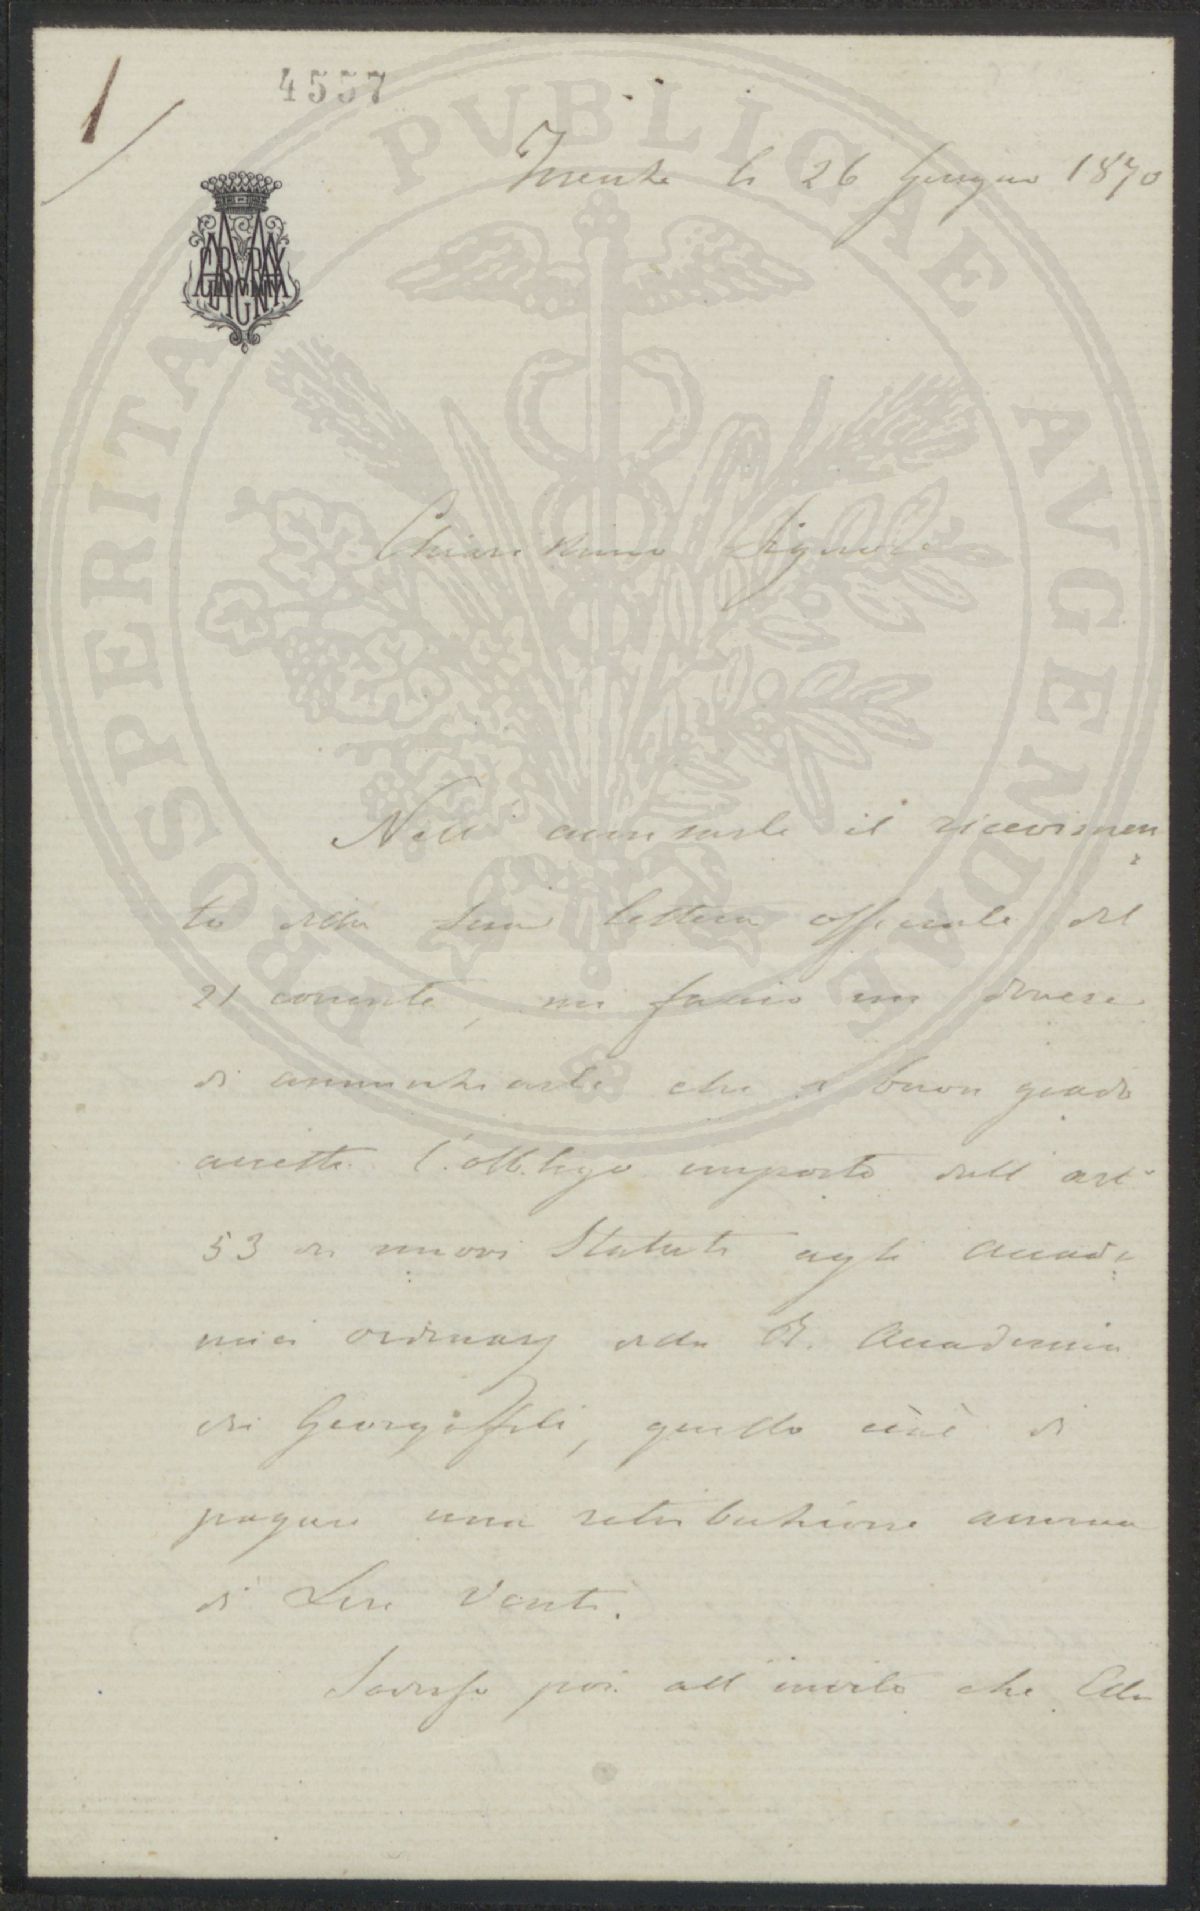 1
4557
Firenze li 26 Giugno 1870
Chiarissimo Signore
Nell' accusarle il ricevimen
to della Sua lettera officiale del
21 corrente, mi faccio un dovere
di annunziarle che di buon grado
accetto l'obbligo imposto dall' art.
53 dei nuovi Statuti agli Accade
mici ordinarj della R. Accademia
dei Georgofili, quello cioè di
pagare una retribuzione annua
di Lire Venti.
poi all' invito che Ella
PROSPERITATI PVBLICAE AVGENDAE